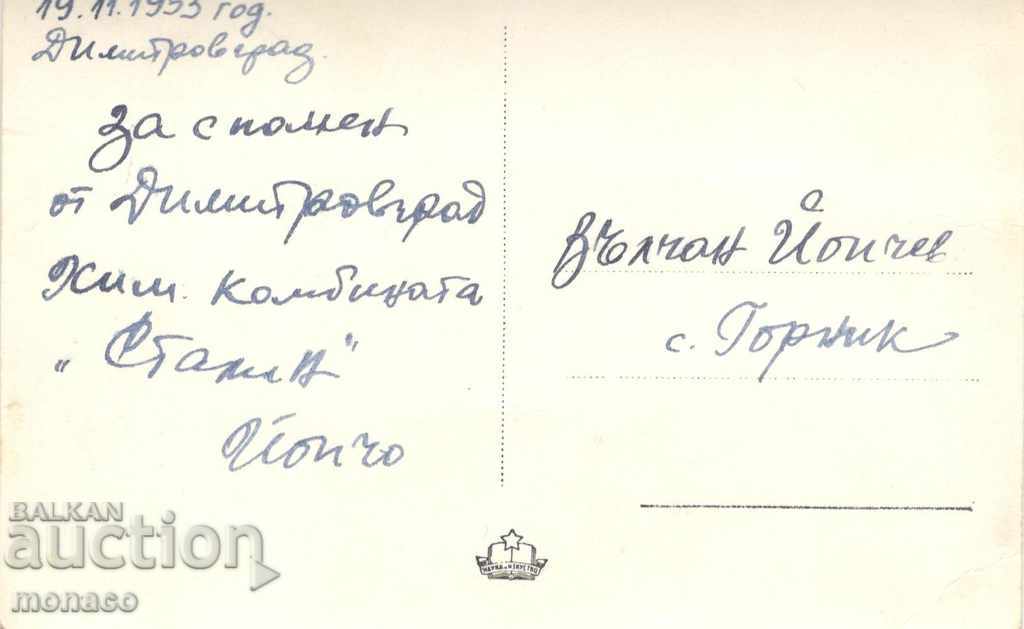 19.11.1953 год.
Димитровград.
За спомен
от Димитровград
Хим. комбината
"Сталин"
Йончо
Вълчан Йончев
с. Горник
НАУКА И ИЗКУСТВО
BALKAN
auction
monaco